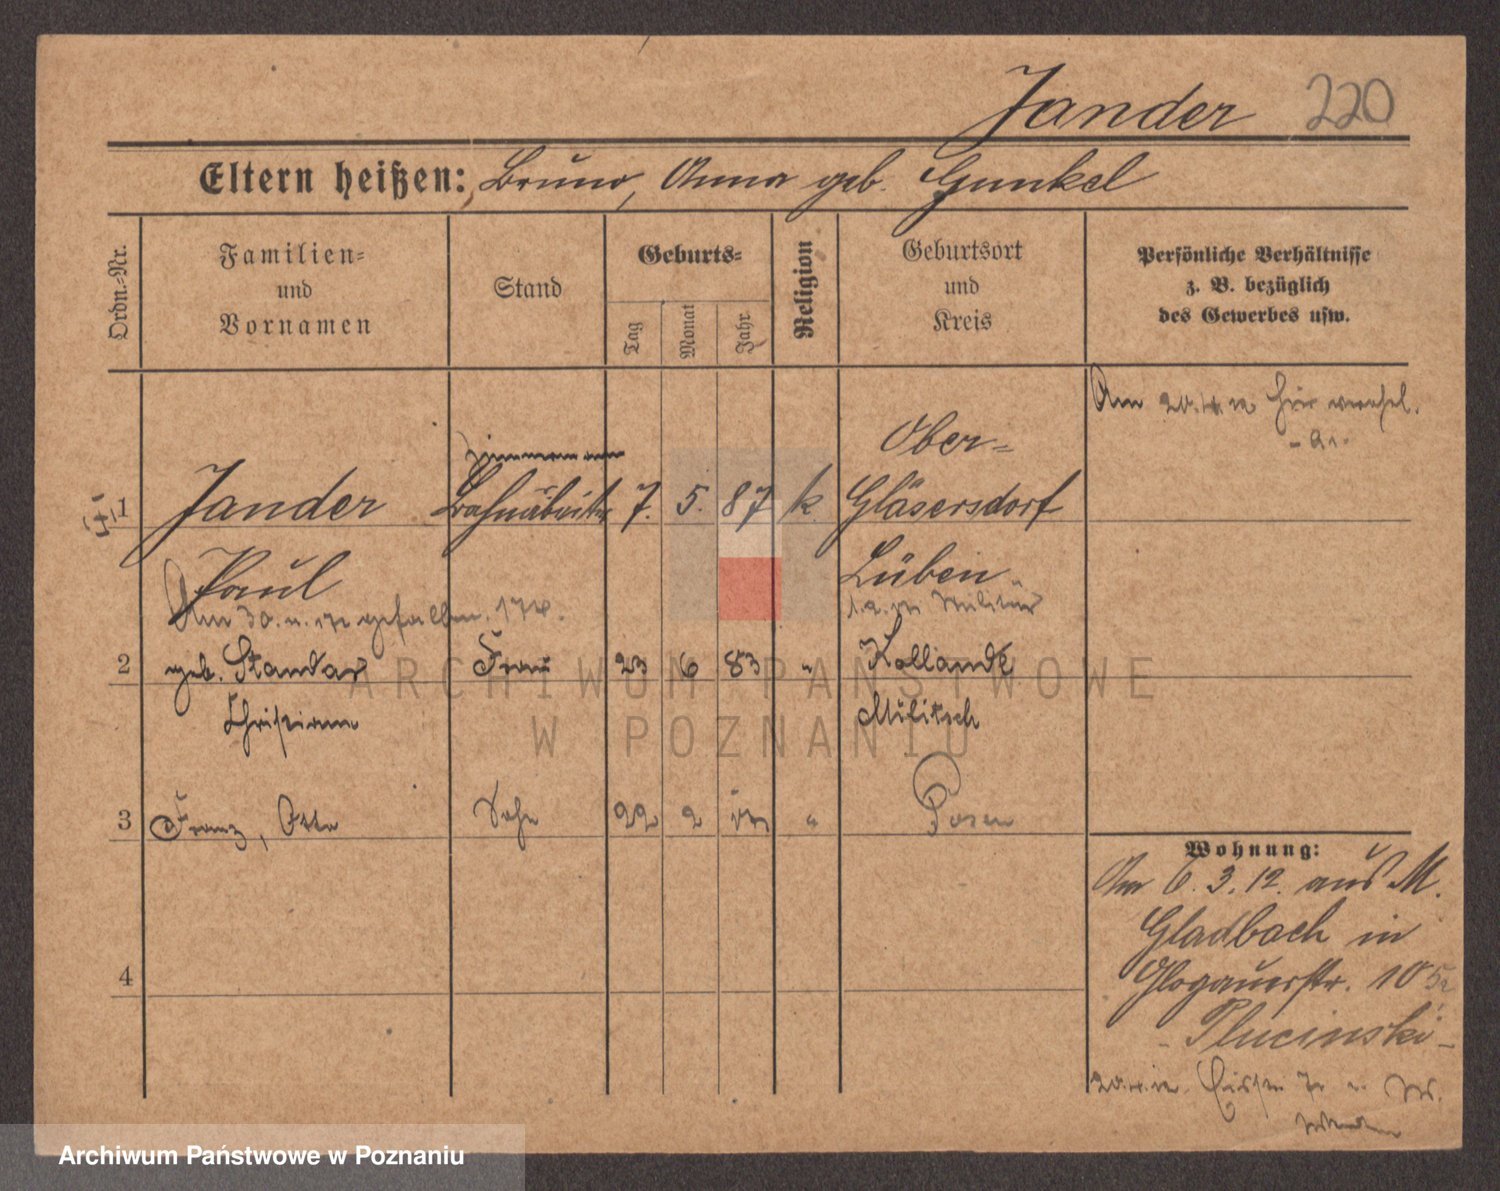 Jander 220
Eltern heißen: Bruno, Anna geb. Gunkel
Ordn.-Nr.
Familien-
und
Vornamen
Stand
Geburts-
Tag
Monat
Jahr
Religion
Geburtsort
und
Kreis
Persönliche Verhältnisse
z. B. bezüglich
des Gewerbes usw.
Am
Zimmermann
Ober-
1 Jander Bahnarbeiter 7. 5. 87 k. Gläsersdorf
Paul Lüben
Am 30. gefallen.
Militär
2 geb. Frau 23 6 83 "
Christiane Militsch
3 Franz, Otto Sohn 22 2 " Posen
4
Wohnung:
Am 6. 3. 12. aus M.
Gladbach in
Glogauerstr. 105a
- Plucinski -
ARCHIWUM PAŃSTWOWE
W POZNANIU
Archiwum Państwowe w Poznaniu